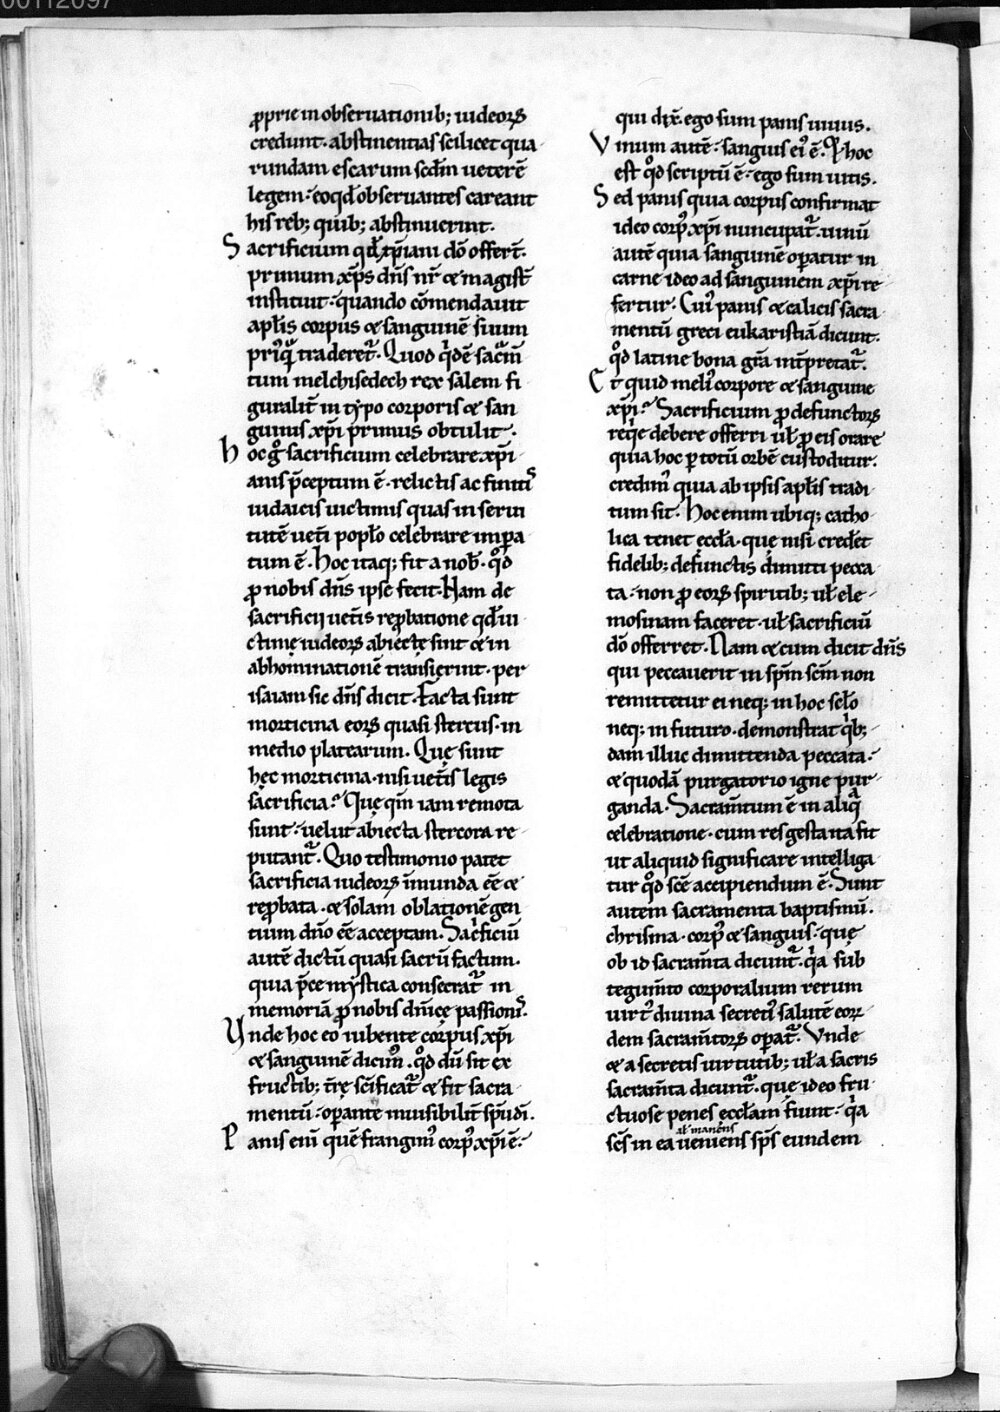 00112097
ꝓprie in obseruationib; iudeoꝝ
credunt. abstinentias scilicet qua
rundam escarum scd̄m ueterē
legem. eo qđ obseruantes careant
his reb; quib; abstinuerint.
Sacrificium qđ xp̄iani dō offerꝉ.
primum xp̄s dn̄s nr̄ & magist̄
instituit. quando cōmendauit
apl̄is corpus & sanguinē suum
priꝰqͣ traderet᷑. Quod qͥdē sac̄m̄
tum melchisedech rex salem fi
guralit̄ in typo corporis & san
guinis xp̄i primus obtulit.
Hoc gͦ sacrificium celebrare xp̄i
anis p̄ceptum ē. relictis ac finitꝭ
iudaicis uictimis quas in serui
tutē uet̄i popl̄o celebrare impa
tum ē. Hoc itaq; fit a nob̄. qͦd
ꝓ nobis dn̄s ipse fecit. Nam de
sacrificij uet̄is reꝓbatione qđ ui
ctimę iudeoꝝ abiectę sint & in
abhominationē transierint. per
isaiam sic dn̄s dicit. Facta sunt
morticina eoꝝ quasi stercus. in
medio platearum. Quę sunt
hęc morticina. nisi uet̄is legis
sacrificia? Quę qm̄ iam remota
sunt. uelut abiecta stercora re
putant᷑. Quo testimonio patet
sacrificia iudeoꝝ īmunda eē &
reꝓbata. & solam oblationē gen
tium dn̄o eē acceptam. Sac̄ficiū
autē dictū quasi sacrū factum.
quia p̄ce mystica consecrat᷑ in
memoriā ꝓ nobis dn̄icę passionꝭ.
Unde hoc eo iubente corpus xp̄i
& sanguinē dicimꝰ. qͦd dū fit ex
fructib; t̄rę sc̄ificat᷑ & fit sacra
mentū. oꝑante inuisibilit̄ sp̄u dī.
Panis enī quē frangimꝰ corpꝰ xp̄i ē.
qui dix̄. ego sum panis uiuus.
Vinum autē. sanguis eiꝰ ē. & hoc
est qͦd scriptū ē. ego sum uitis.
Sed panis quia corpus confirmat
ideo corpꝰ xp̄i nuncupat᷑. uinū
autē quia sanguinē oꝑatur in
carne ideo ad sanguinem xp̄i re
fertur. Cuiꝰ panis & calicis sacra
mentū greci eukaristiā dicunt.
qͦd latine bona grā int̄pretat᷑.
Et quid meliꝰ corpore & sanguine
xp̄i? Sacrificium ꝓ defunctoꝝ
reqͥe debere offerri ul̄ ꝓ eis orare
quia hoc ꝑ totū orbē custoditur.
credimꝰ quia ab ipsis apl̄is tradi
tum sit. Hoc enim ubiq; catho
lica tenet eccl̄a. que nisi crederet
fidelib; defunctis dimitti pecca
ta. non ꝓ eoꝝ spiritib; ul̄ ele
mosinam faceret. ul̄ sacrificiū
dō offerret. Nam & cum dicit dn̄s
qui peccauerit in sp̄m sc̄m non
remittetur ei neq; in hoc sc̄lo
neq; in futuro. demonstrat qͥb;
dam illuc dimittenda peccata.
& quodā purgatorio igne pur
ganda. Sacram̄tum ē in aliqͣ
celebratione. cum res gesta ita fit
ut aliquid significare intelliga
tur qͦd sc̄e accipiendum ē. Sunt
autem sacramenta baptismū.
chrisma. corpꝰ & sanguis. quę
ob id sacram̄ta dicunt᷑. qͥa sub
tegum̄to corporalium rerum
uirtꝰ diuina secretiꝰ salutē eoꝝ
dem sacram̄toꝝ oꝑat᷑. Unde
& a secretis uirtutib; ul̄ a sacris
sacram̄ta dicunt᷑. quę ideo fru
ctuose penes eccl̄am fiunt. qͥa
al̄ manens
sc̄s in ea ueniens sp̄s eundem